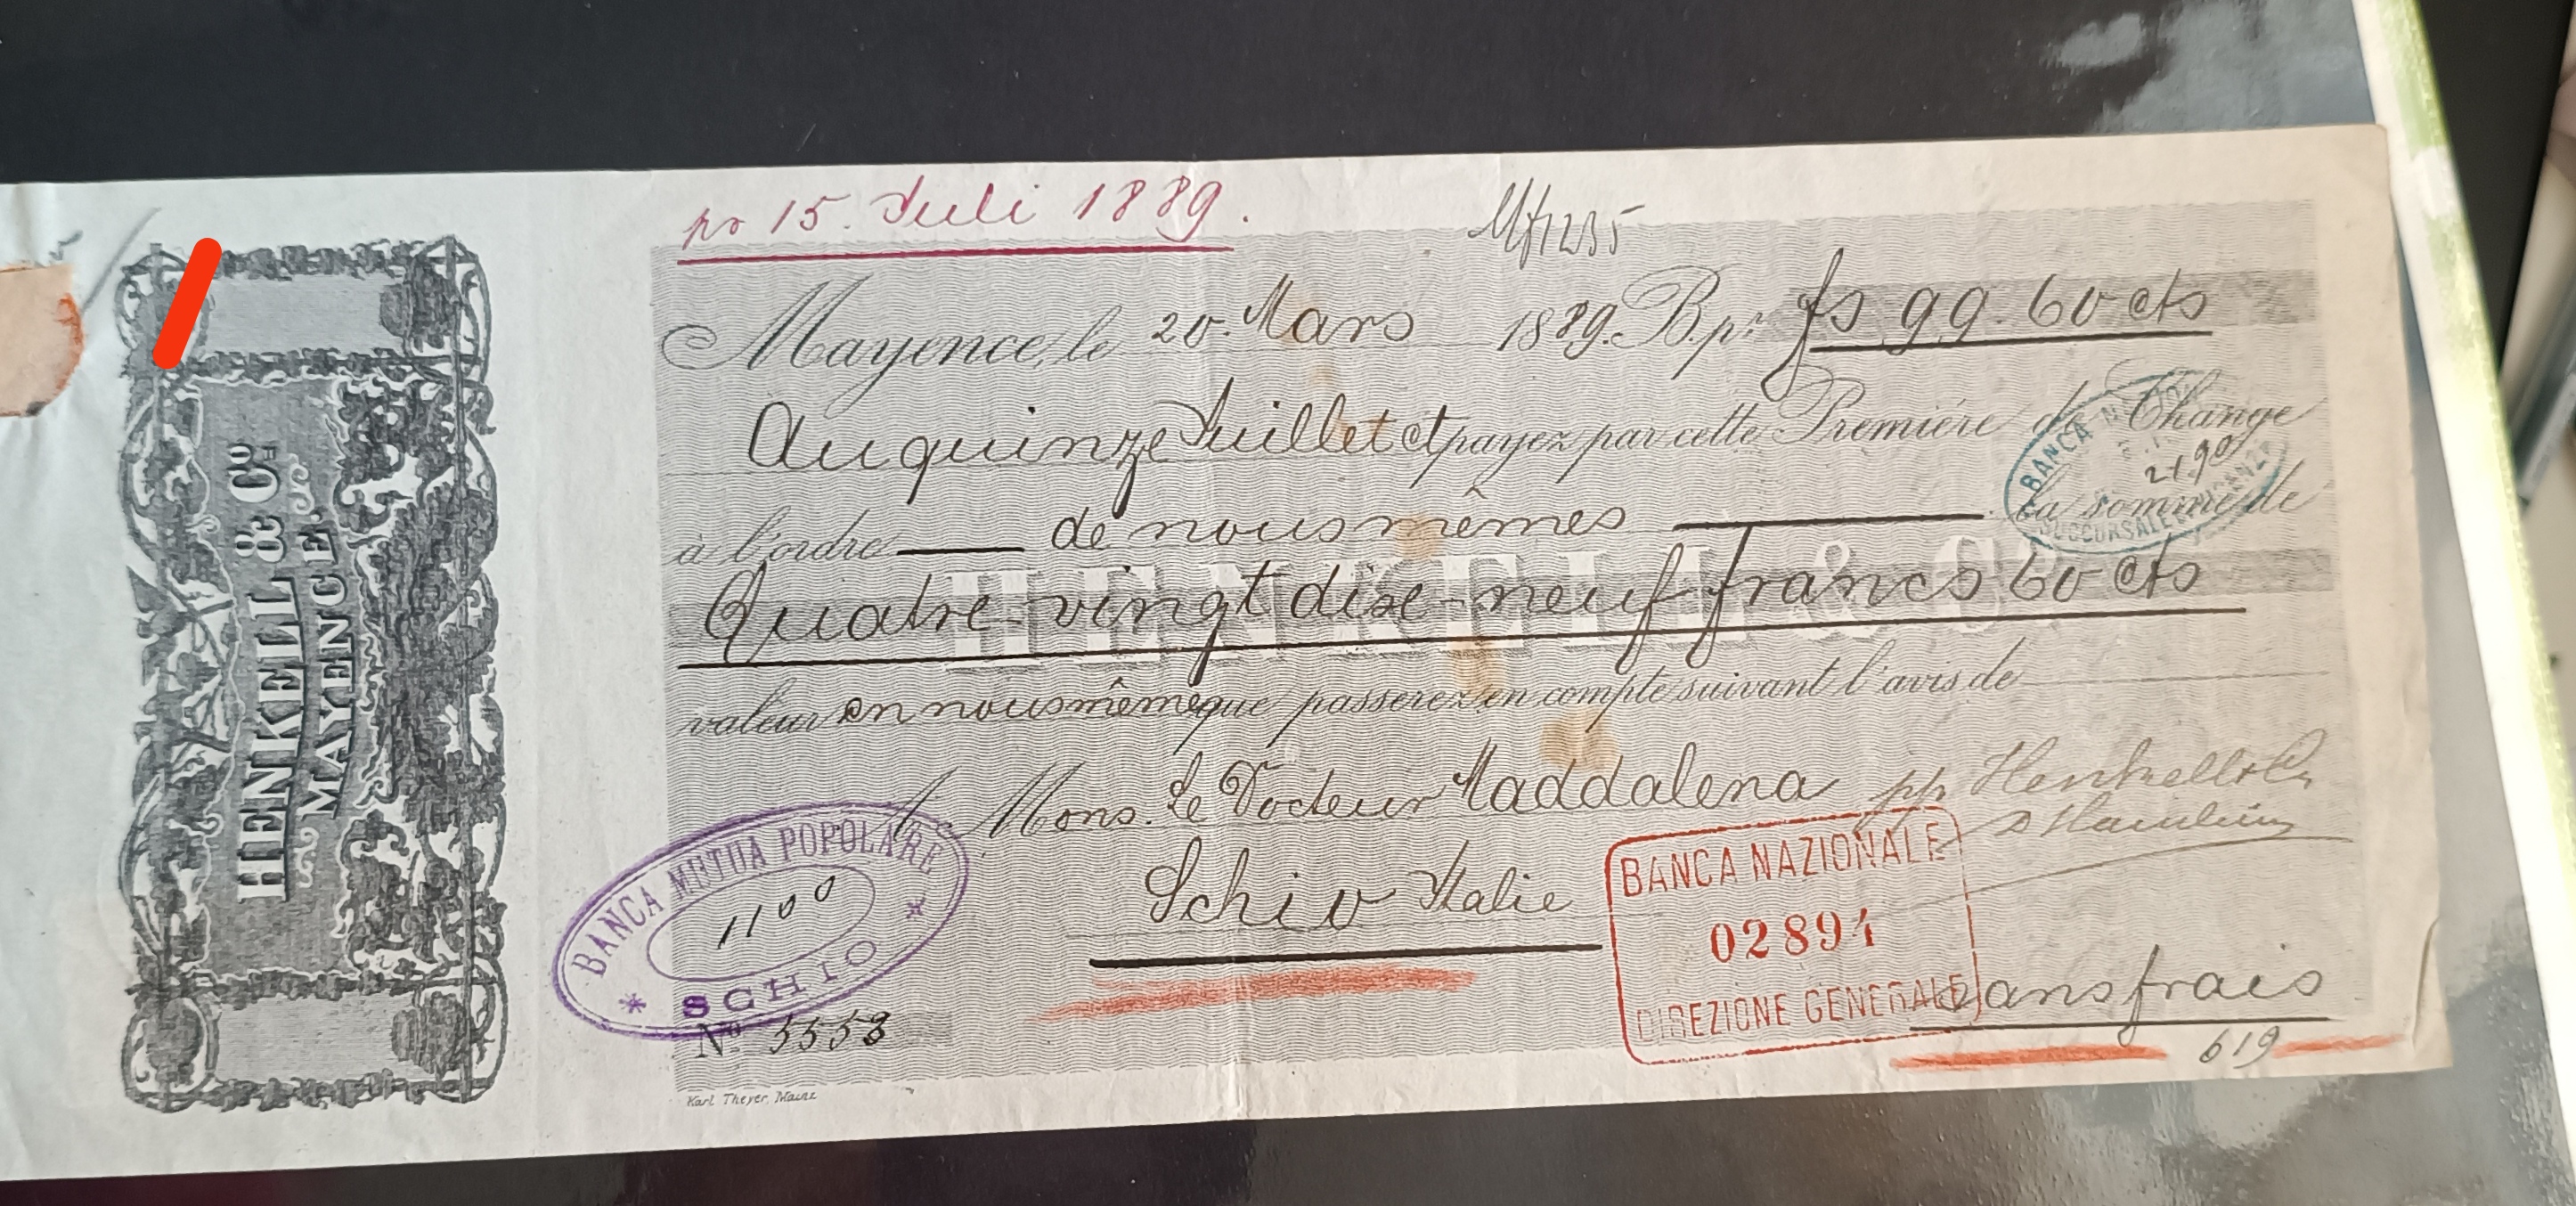 HENKELL & Cº
MAYENCE.
pr 15. Juli 1889.
Mayence, le 20. Mars 1889. B. pr. fs 99.60 cts
Au quinze Juillet et payez par cette Premiére de Change
à l'ordre de nous mêmes la somme de
Quatre-vingt dix-neuf francs 60 cts
HENKELL & Cº
valeur en nous mêmes que passerez en compte suivant l'avis de
A Mons. Le Docteur Maddalena pp. Henkell & Co
Schio Italie
sans frais
619
Nº 5558
Karl Theyer, Mainz
BANCA MUTUA POPOLARE
1100
* SCHIO *
BANCA NAZIONALE
02894
DIREZIONE GENERALE
BANCA
21.90
SUCCURSALE